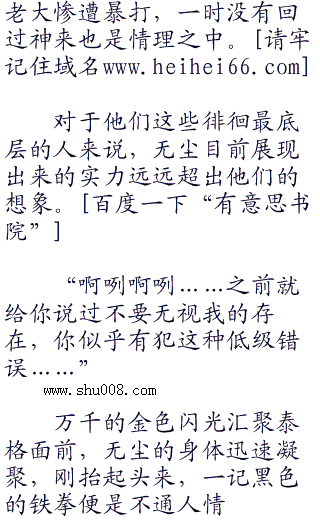 老大惨遭暴打，一时没有回
过神来也是情理之中。[请牢
记住域名www.heihei66.com]
对于他们这些徘徊最底
层的人来说，无尘目前展现
出来的实力远远超出他们的
想象。[百度一下“有意思书
院”]
“啊咧啊咧……之前就
给你说过不要无视我的存
在，你似乎有犯这种低级错
误……”
www.shu008.com
万千的金色闪光汇聚泰
格面前，无尘的身体迅速凝
聚，刚抬起头来，一记黑色
的铁拳便是不通人情